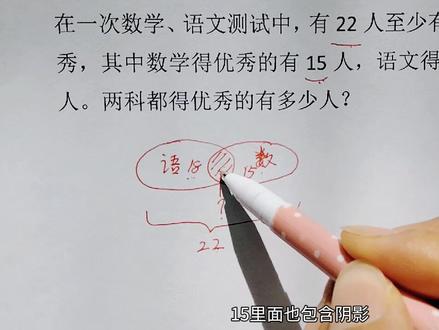 在一次数学、语文测试中，有 22 人至少有
秀，其中数学得优秀的有 15 人，语文得
人。两科都得优秀的有多少人？
语 18 15 数
?
22
15里面也包含阴影